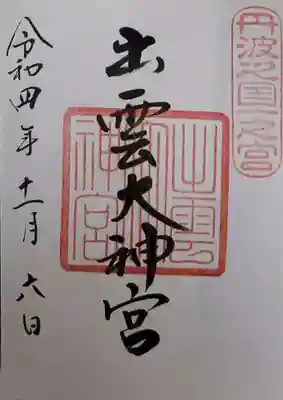 丹波之国一之宮
出雲大神宮
出雲
神宮
令和四年十一月六日